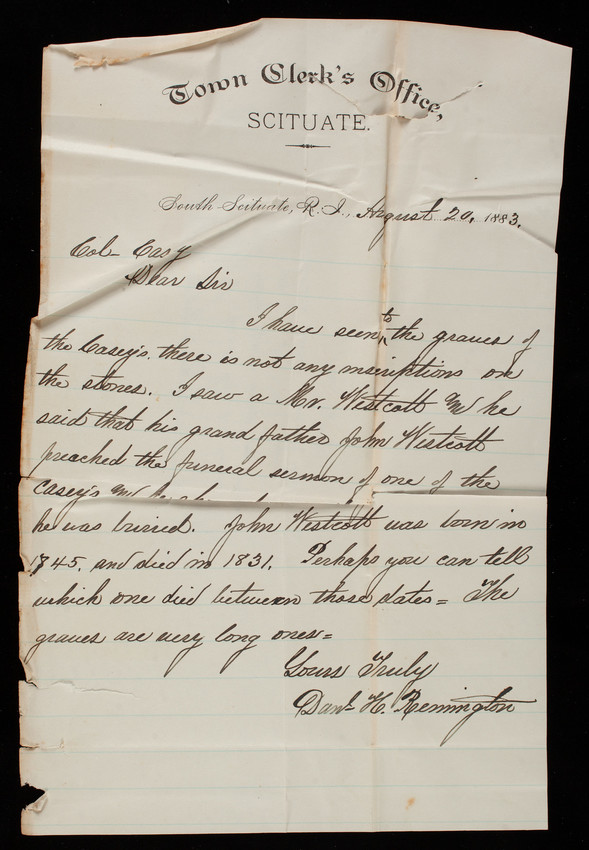 Town Clerk's Office,
SCITUATE.
South Scituate, R. I., August 20, 1883.
Col- Casy
Dear Sir
I have seen to the graves of
the Casey's. there is not any insriptions on
the stones. I saw a Mr. Westcott and he
said that his grand father John Westcott
preached the funeral sermon of one of the
Casey's and
he was buried. John Westcott was born in
1745. and died in 1831. Perhaps you can tell
which one died between those dates = The
graves are very long ones =
Yours Truly
Danl. H. Remington